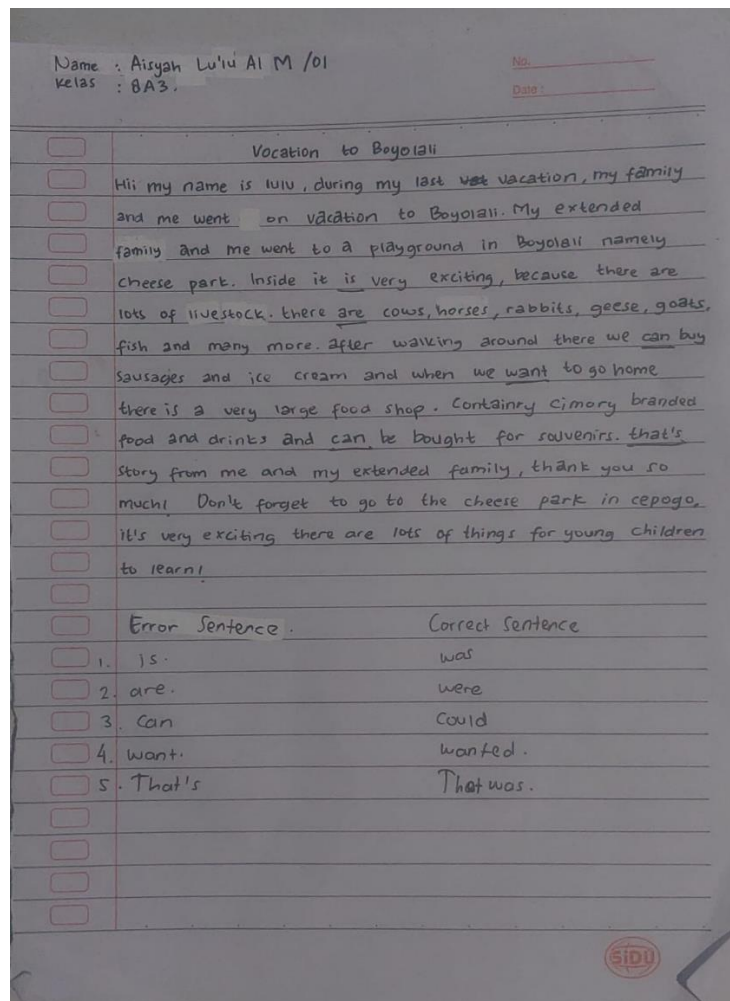 Name : Aisyah Lu'lu Al M /01
Kelas : 8A3.
No.
Date :
Vocation to Boyolali
Hii my name is lulu, during my last vacation, my family
and me went on vacation to Boyolali. My extended
family and me went to a playground in Boyolali namely
cheese park. Inside it is very exciting, because there are
lots of livestock. there are cows, horses, rabbits, geese, goats,
fish and many more. after walking around there we can buy
sausages and ice cream and when we want to go home
there is a very large food shop. Containry cimory branded
food and drinks and can be bought for souvenirs. that's
story from me and my extended family, thank you so
much! Don't forget to go to the cheese park in cepogo,
it's very exciting there are lots of things for young children
to learn!
Error Sentence. Correct Sentence
1. is. was
2. are. were
3. Can Could
4. want. wanted.
5. That's That was.
SIDU